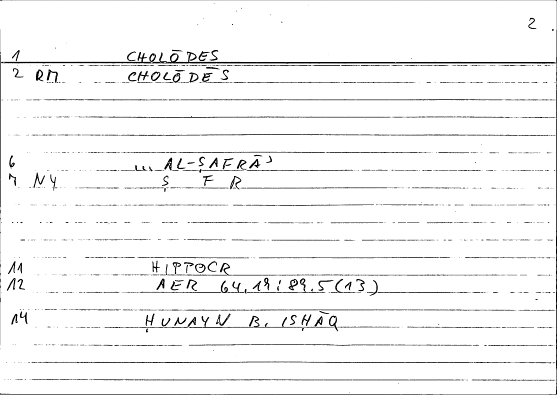 2
1 CHOLŌDES
2 RM CHOLŌDĒS
6 ... AL-ṢAFRĀʾ
7 NY Ṣ F R
11 HIPPOCR
12 AER 64.19:89.5(13)
14 ḤUNAYN B. ISḤĀQ